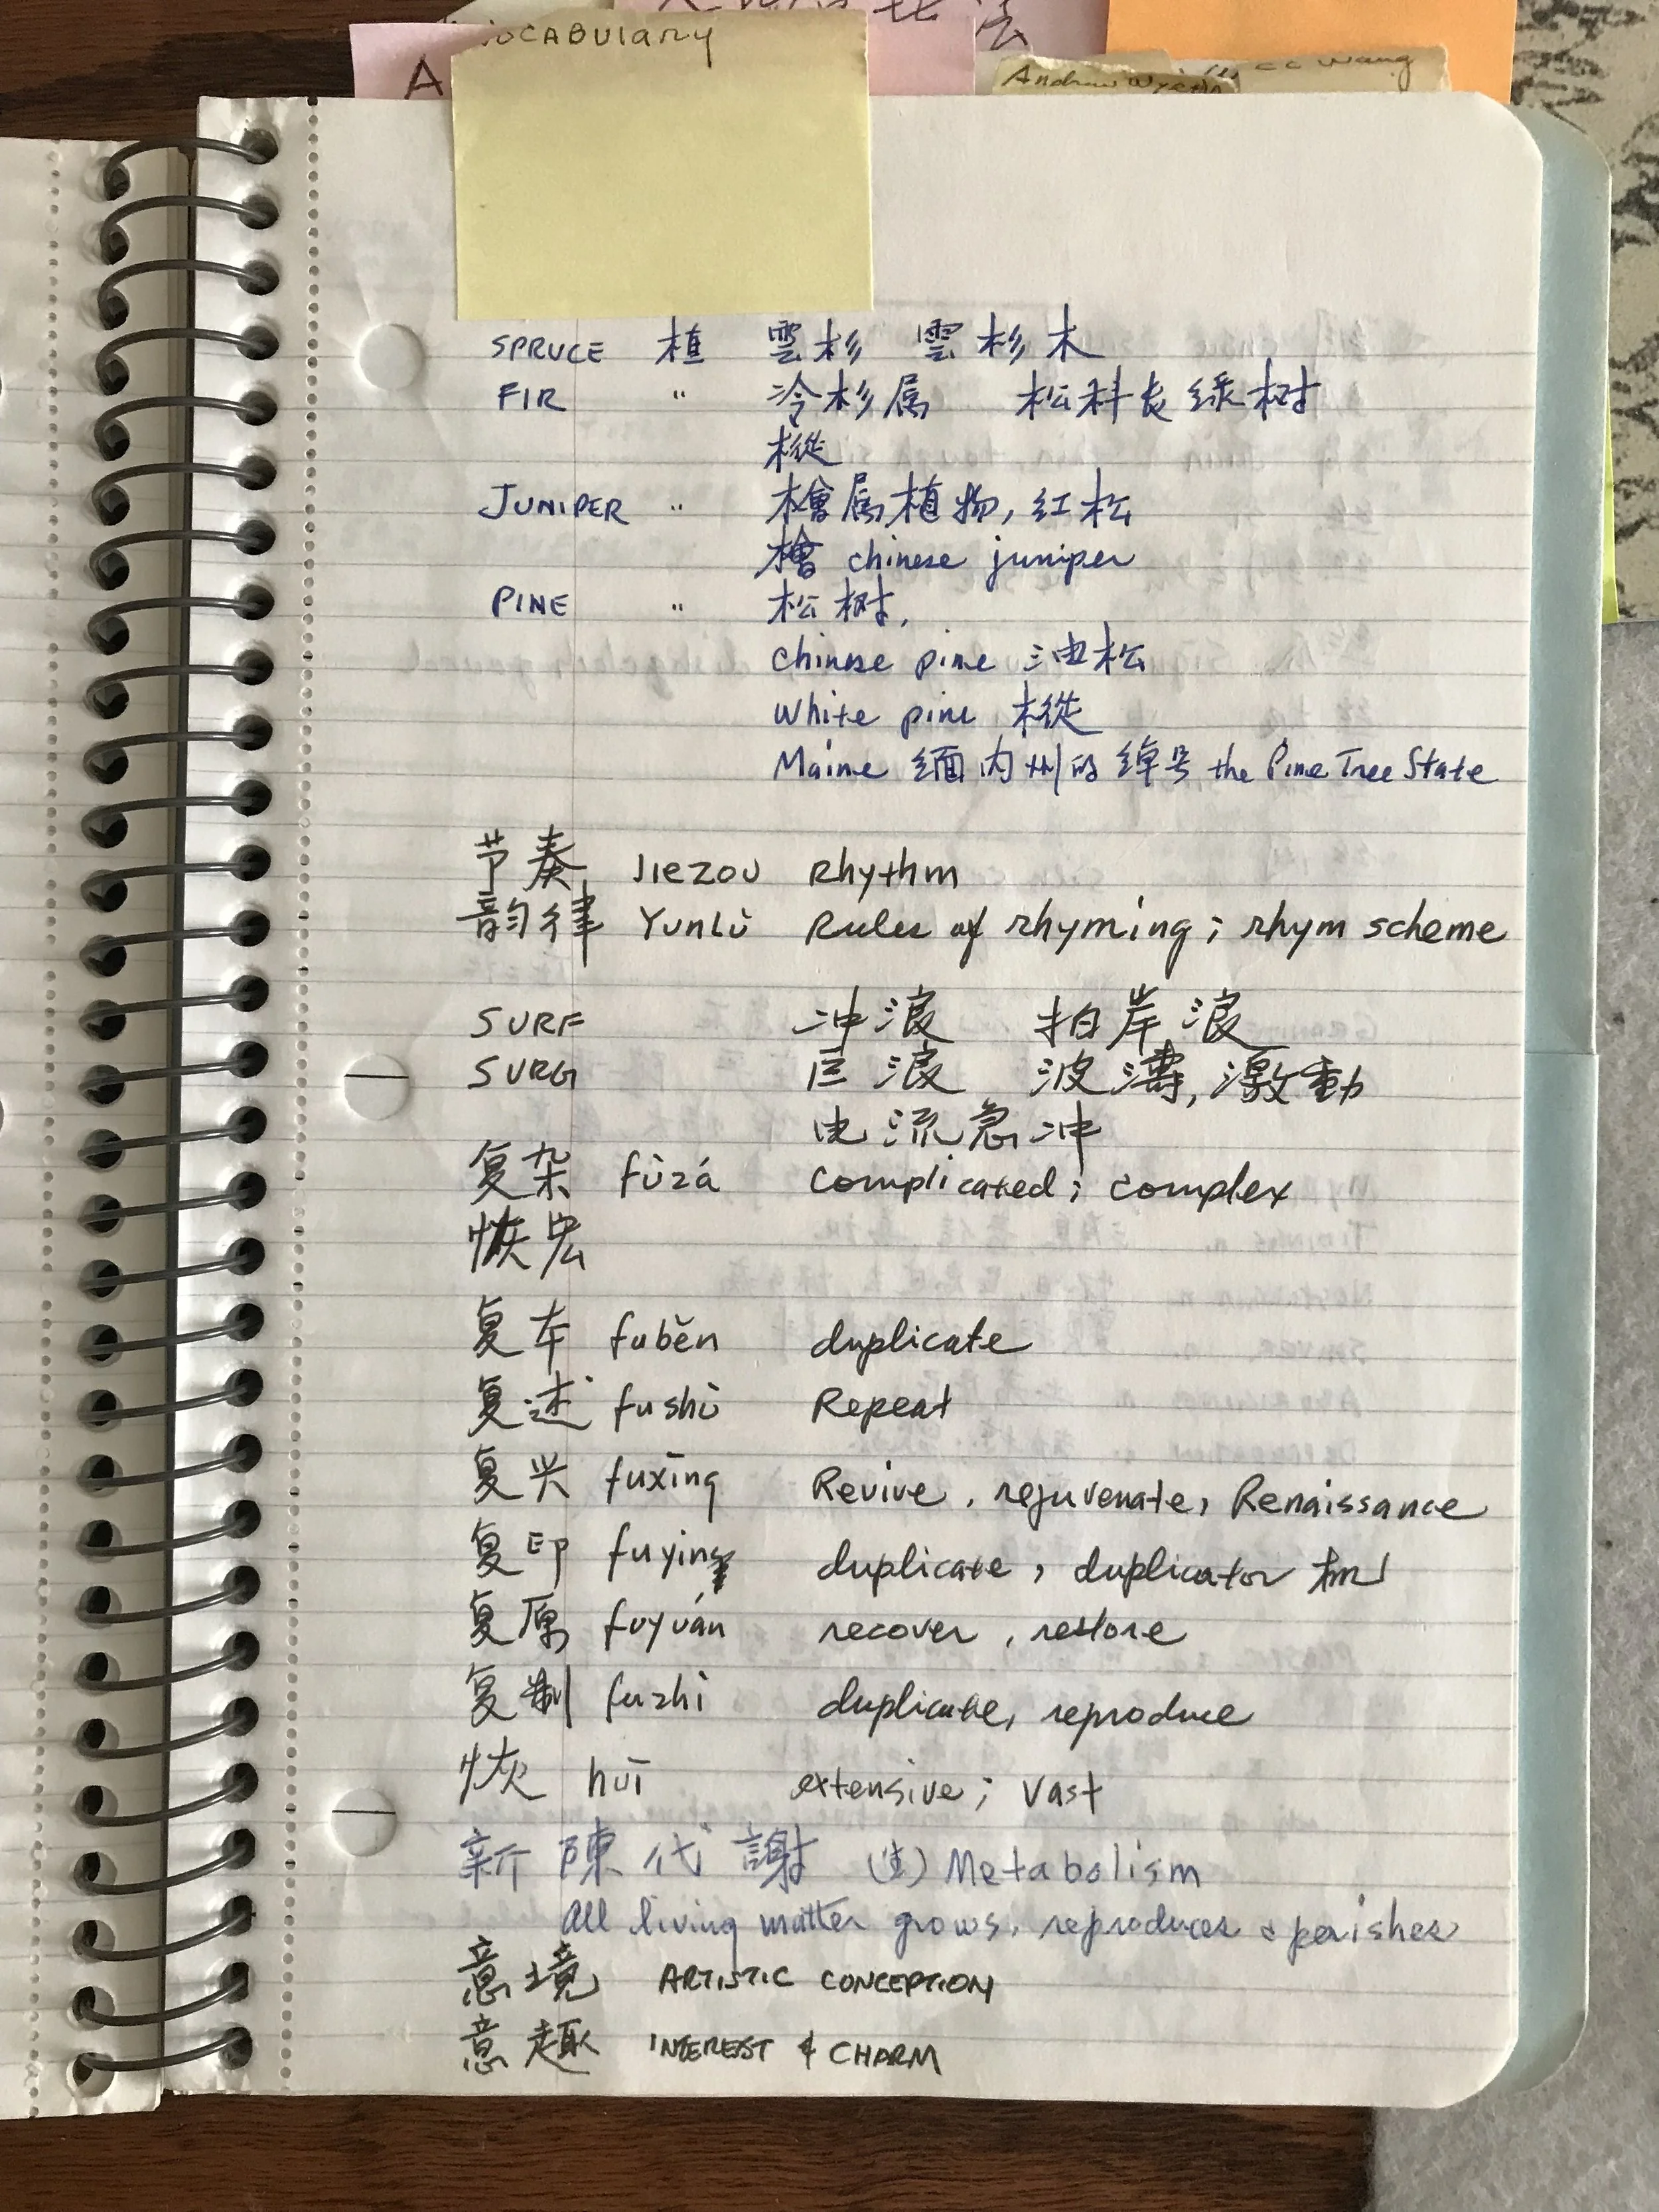 VOCABULARY
A
法
CC Wang
Andrew Wyeth
SPRUCE 植 雲杉 雲杉木
FIR " 冷杉属 松科长绿树
樅
JUNIPER " 檜属植物, 红松
檜 chinese juniper
PINE " 松树,
Chinese pine 油松
White pine 樅
Maine 缅内州的绰号 the Pine Tree State
节奏 JIEZOU Rhythm
韵律 YUNLÙ Rules of rhyming; rhym scheme
SURF 冲浪 拍岸浪
SURG 巨浪 波濤, 激動
电流急冲
复杂 fùzá complicated; complex
恢宏
复本 fuběn duplicate
复述 fushù Repeat
复兴 fuxīng Revive, rejuvenate, Renaissance
复印 fuying duplicate, duplicator 机
复原 fuyuán recover, restore
复制 fuzhì duplicate, reproduce
恢 huī extensive; vast
新陳代謝 (生) Metabolism
All living matter grows, reproduces & perishes
意境 ARTISTIC CONCEPTION
意趣 INTEREST & CHARM